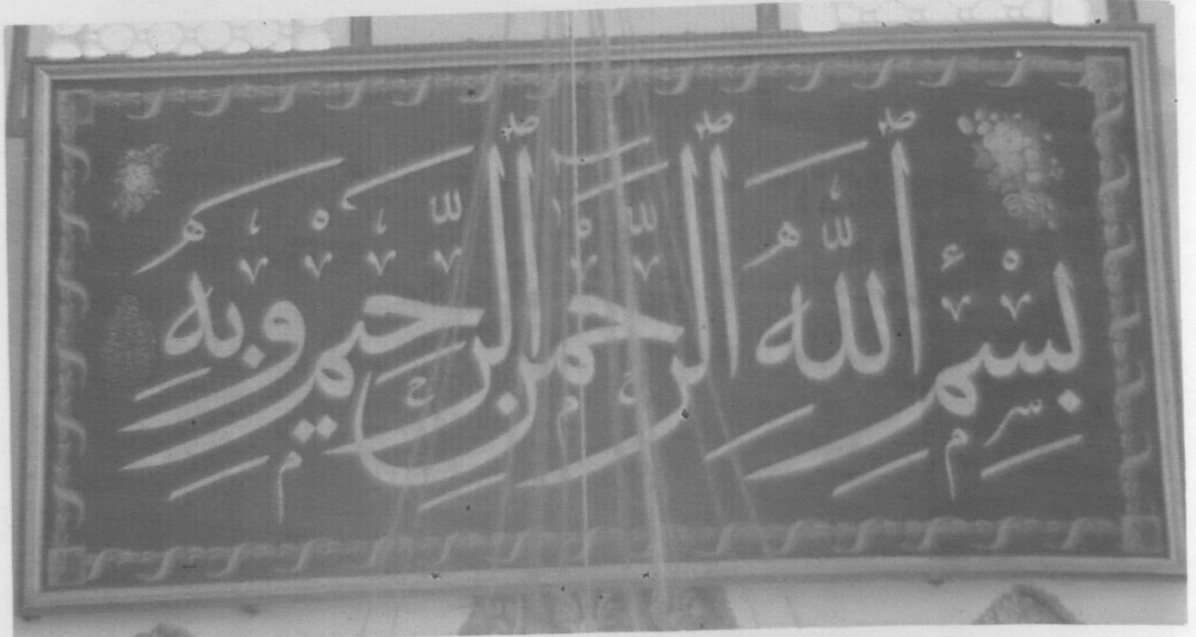 بِسْمِ اللَّهِ الرَّحْمٰنِ الرَّحِيمِ وَبِهِ